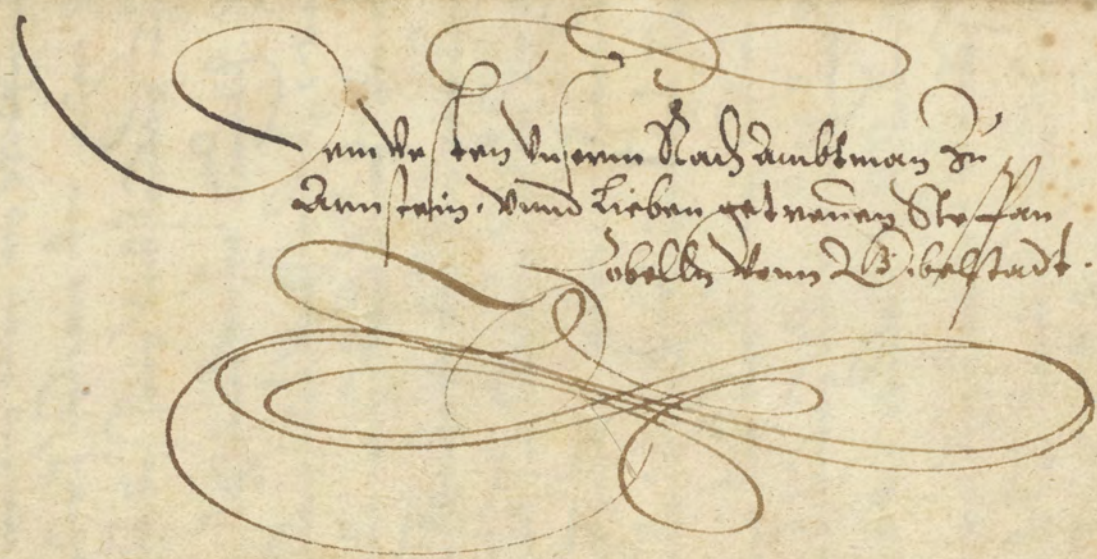 Dem Vesten Vnserm Rath Ambtman zu
Arnstein, Vnnd Lieben getreuen Steffan
Zobelln Vonn Gibelstadt.